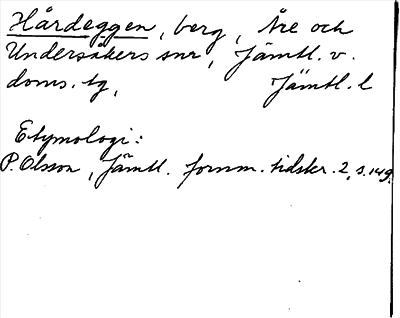 Hårdeggen, berg, Åre och
Undersåkers snr, Jämtl. v.
doms. tg, Jämtl. l
Etymologi:
P. Olsson, Jämtl. fornm. tidskr. 2, s. 149.